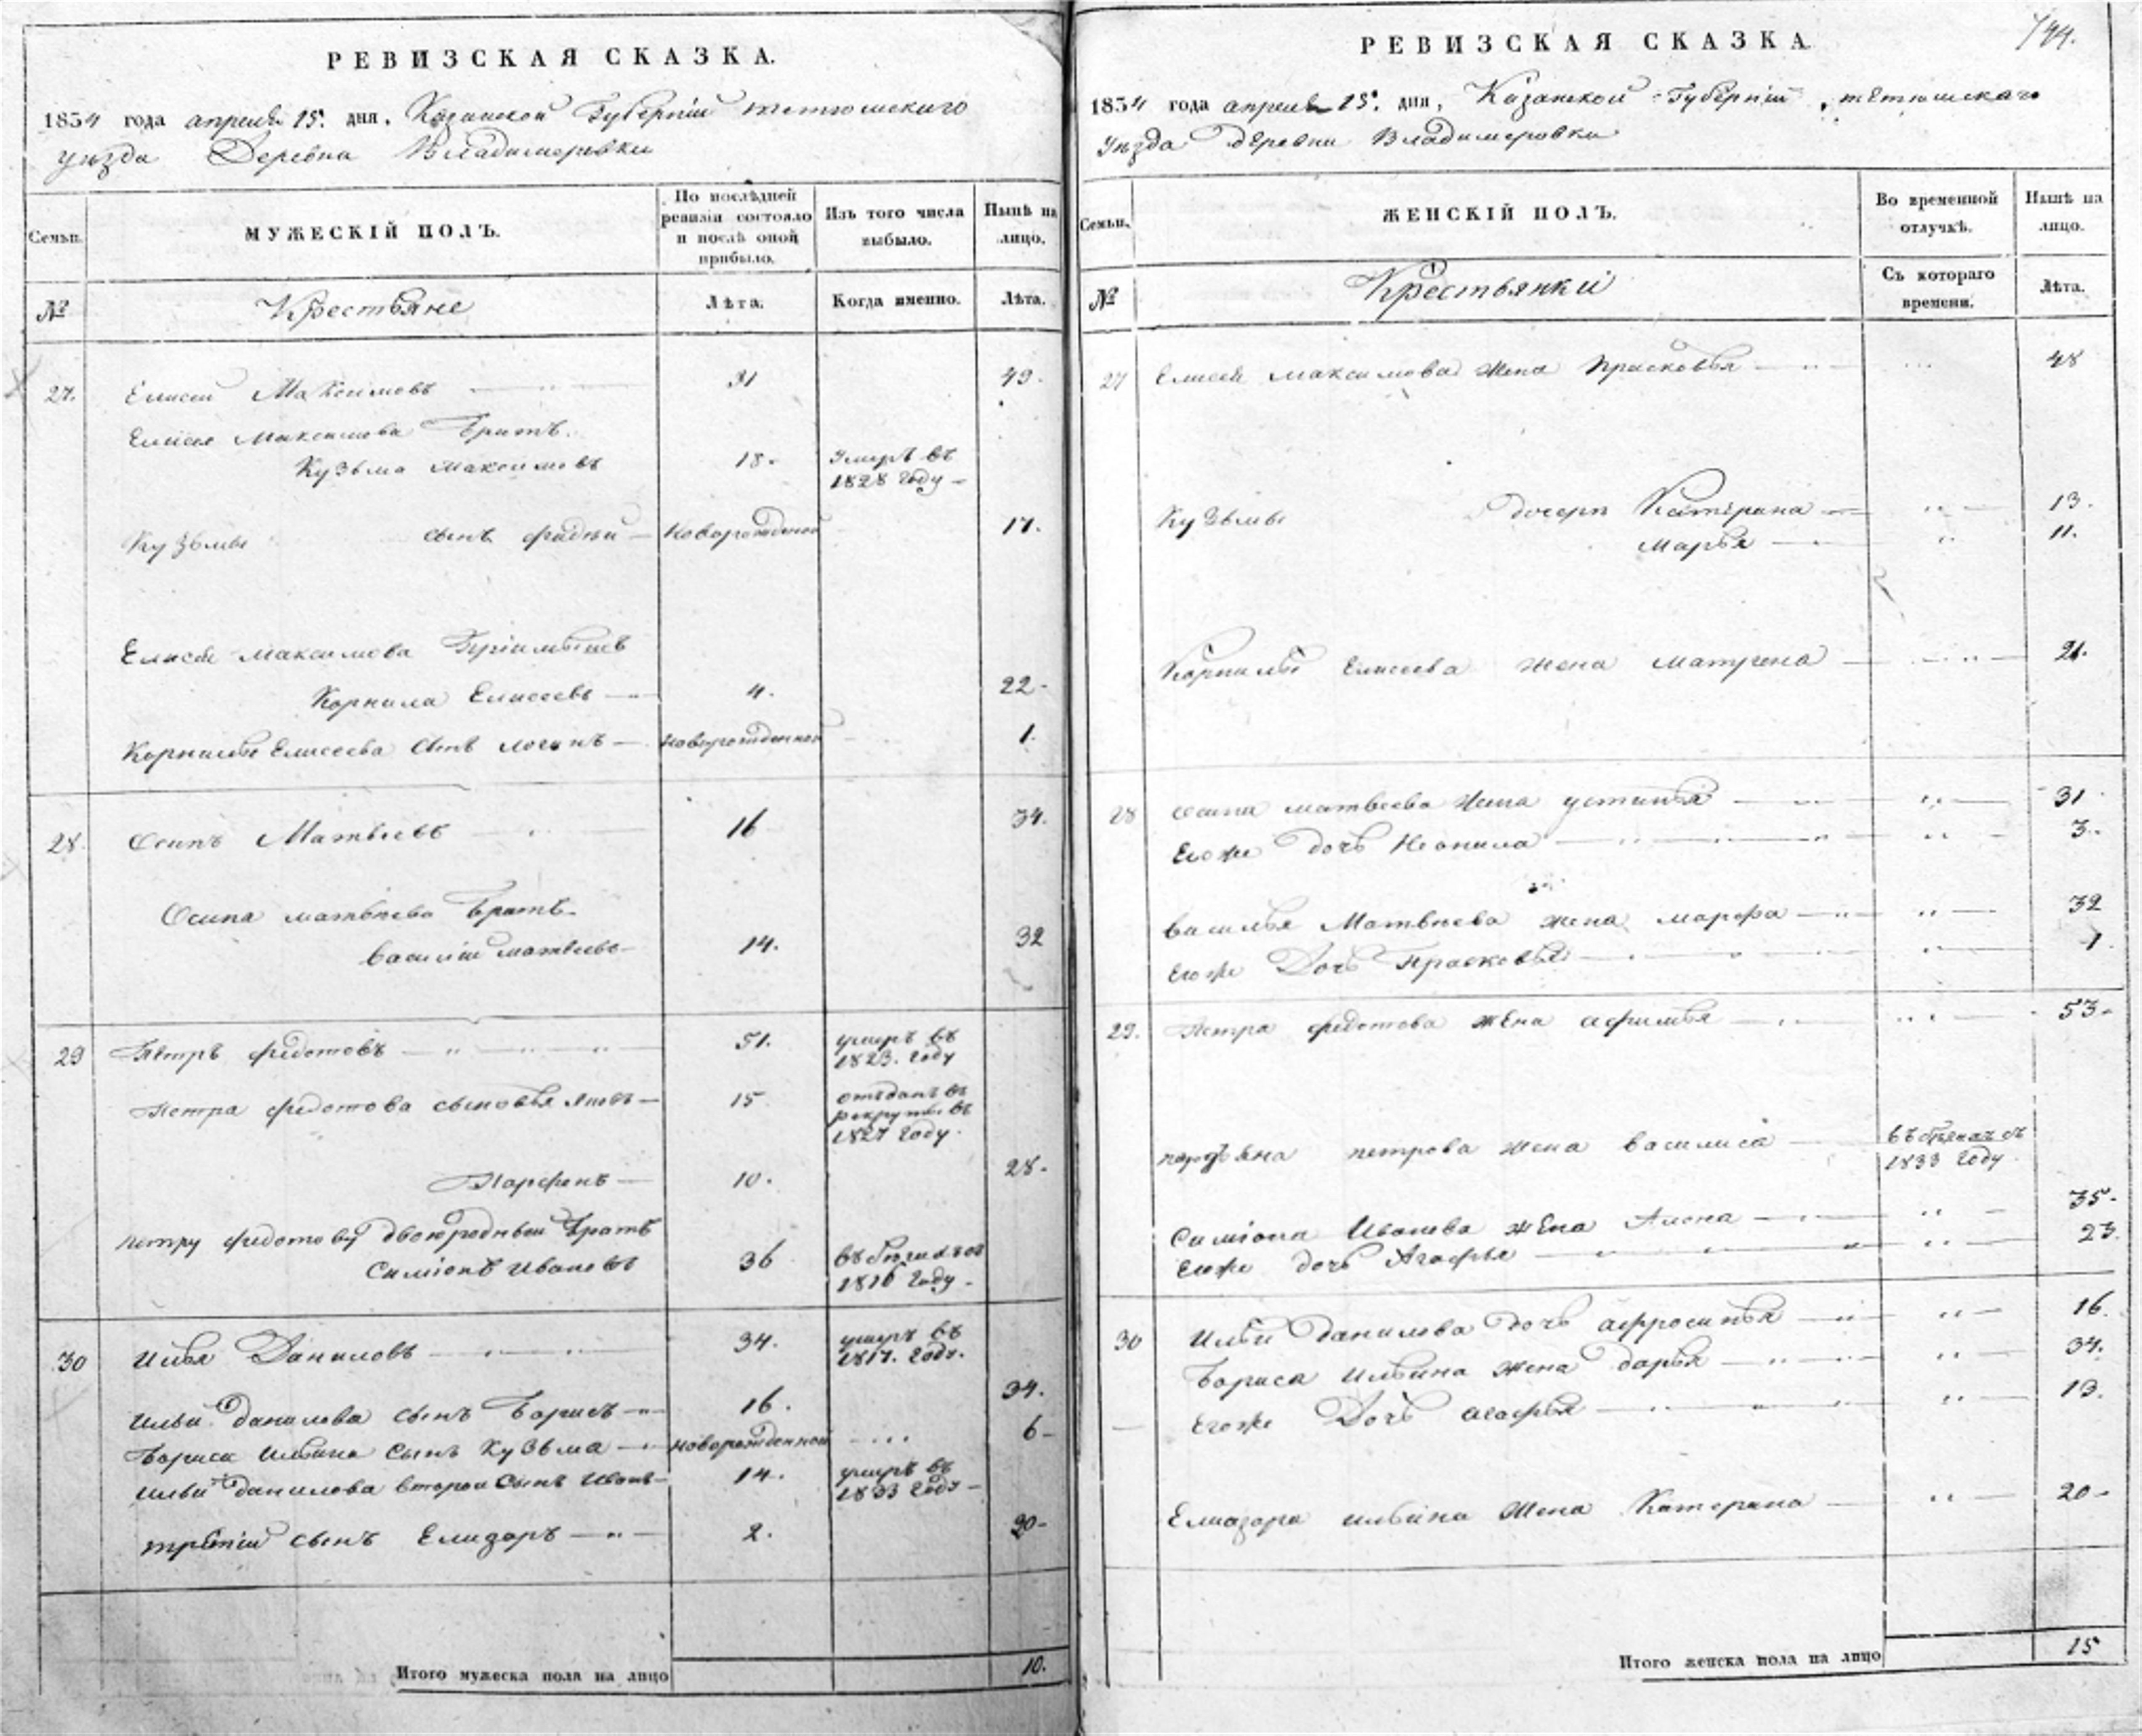 РЕВИЗСКАЯ СКАЗКА.
1834 года апреля 15. дня, Казанской Губернiи тетюшскаго
уезда Деревна Владимеровки
Семьи.
МУЖЕСКІЙ ПОЛЪ.
По послѣдней ревизіи состояло и послѣ оной прибыло.
Изъ того числа выбыло.
Нынѣ на лицо.
№
Крестьяне
Лѣта.
Когда именно.
Лѣта.
27. Елисей Максимовъ 31 49.
Елисея Максимова Братъ
Кузьма Максимовъ 18. Умеръ въ
1828 году
Кузьмы сынъ фадѣй Новорожденой 17.
Елисея Максимова Приимышъ
Корнила Елисеевъ 4. 22
Корнилы Елисеева Сынъ логинъ новорожденной 1.
28. Осипъ Матвѣевъ 16 34.
Осипа матвѣева Братъ
василiи матвѣевъ 14. 32
29 Петръ федотовъ 51. умеръ въ
1823. году
Петра федотова сыновья Яковъ 15 отъданъ въ
рекруты въ
1827 году.
Парфенъ 10. 28.
петру федотову двоюродный Братъ
Симiонъ Ивановъ 36 въ бегахъ
1816 году
30 Илья Даниловъ 34. умеръ въ
1817. году.
Ильи данилова сынъ Борисъ 16. 34.
Бориса Ильина Сынъ Кузьма новорожденной 6
Ильи данилова второй Сынъ Иванъ 14. умеръ въ
1833 году
третiй сынъ Елизаръ 2. 20
Итого мужеска пола на лицо 10.
744.
РЕВИЗСКАЯ СКАЗКА
1834 года апреля 15. дня, Казанской Губернiи, тетюшскаго
Уезда деревни Владимеровки
Семьи.
ЖЕНСКІЙ ПОЛЪ.
Во временной отлучкѣ.
Нынѣ на лицо.
№
Крестьянки
Съ котораго времени.
Лѣта.
27 Елисея максимова жена прасковья 48
Кузьмы дочери Катерина 13.
Марья 11.
Корнилы Елисеева жена матрена 21.
28 Осипа матвеева жена устинья 31
Егоже дочь Неонила 3.
василья Матвѣева жена марфа 32
Егоже Дочь прасковья 1.
29. Петра федотова жена афимья 53
петрова жена василиса
1833 году
Симiона Иванова жена Алена 35.
Егоже дочь Агафья 23.
30 Ильи данилова дочь афросинья 16.
Бориса ильина жена дарья 34.
Егоже Дочь агафья 13.
Елиазара ильина жена Катерина 20
Итого женска пола на лицо 15